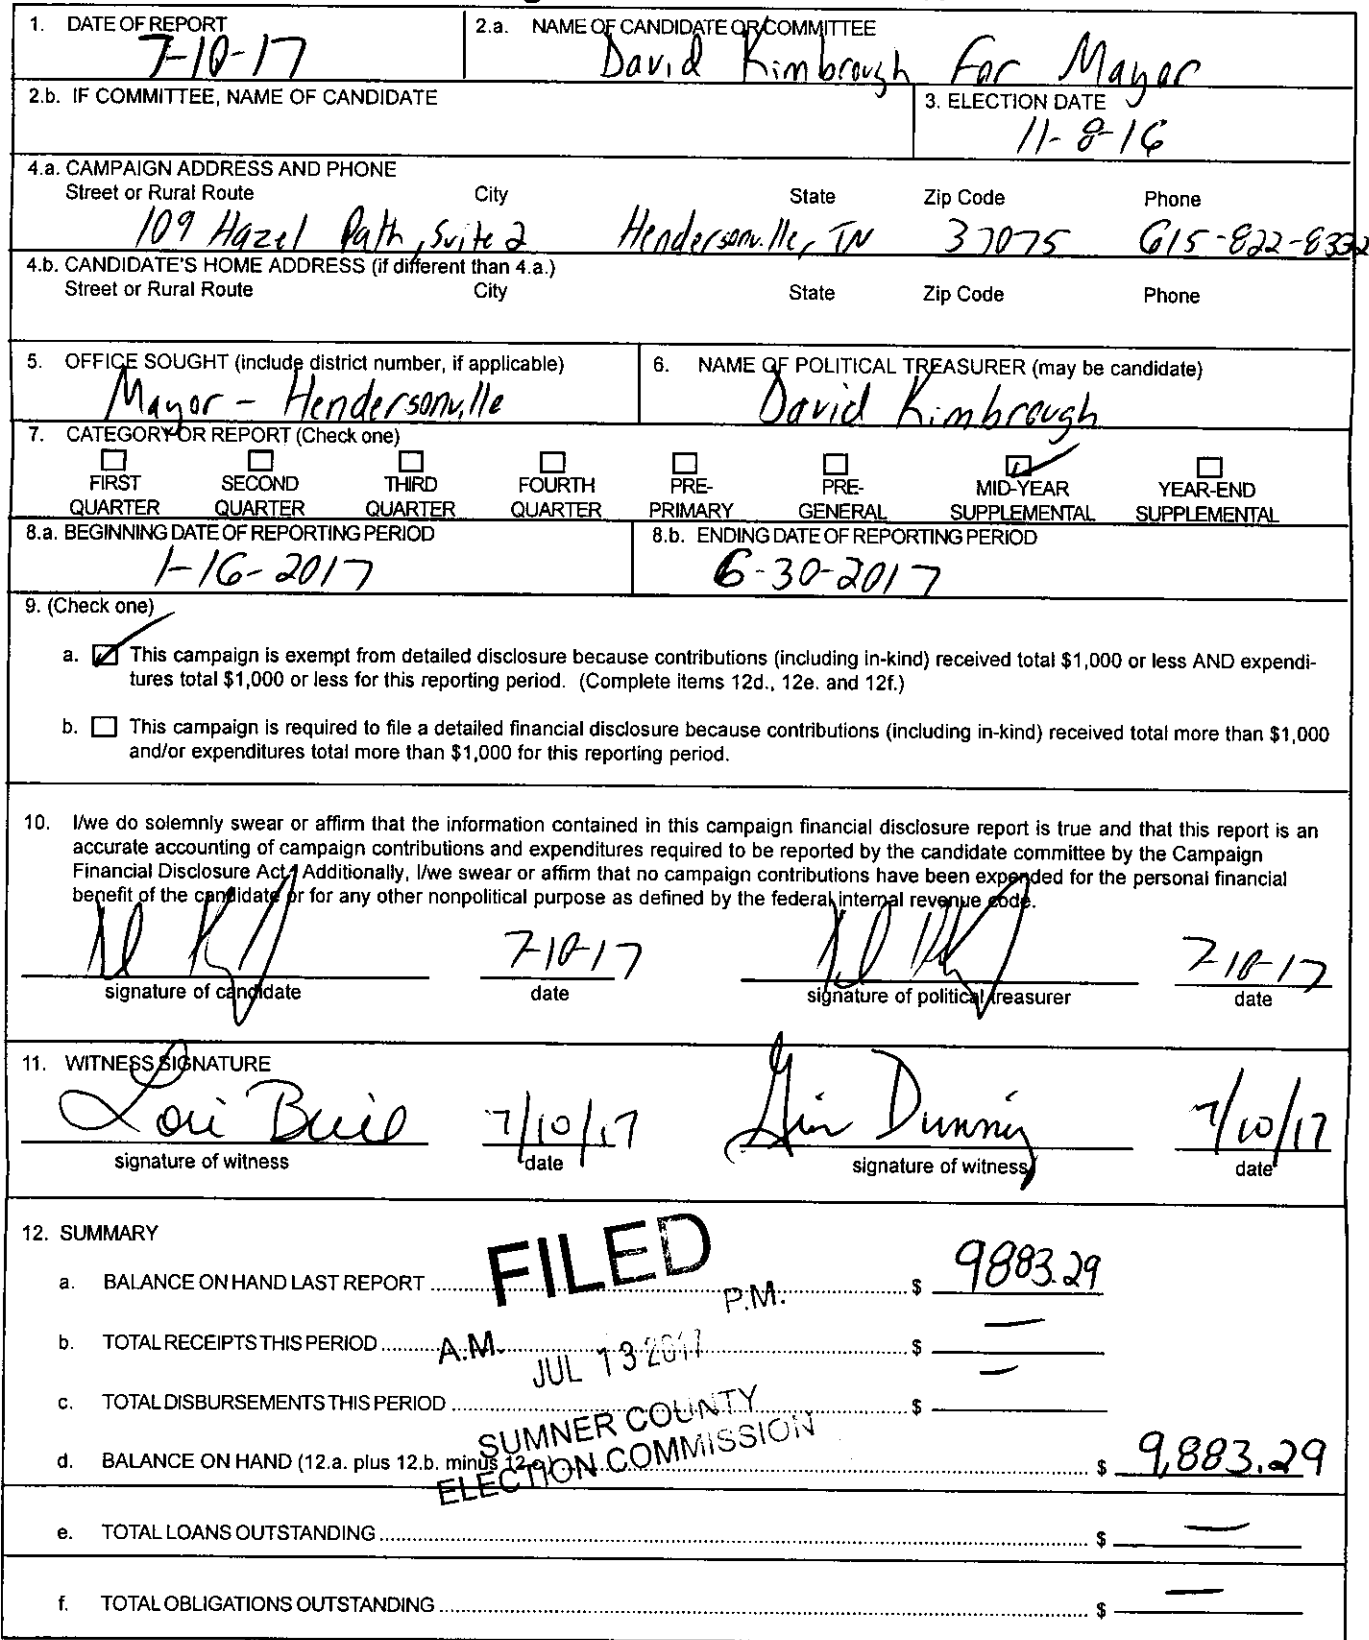 1. DATE OF REPORT
7-10-17
2.a. NAME OF CANDIDATE OR COMMITTEE
David Kimbrough For Mayor
2.b. IF COMMITTEE, NAME OF CANDIDATE
3. ELECTION DATE
11-8-16
4.a. CAMPAIGN ADDRESS AND PHONE
Street or Rural Route City State Zip Code Phone
109 Hazel Path, Suite 2 Hendersonville, TN 37075 615-822-8332
4.b. CANDIDATE'S HOME ADDRESS (if different than 4.a.)
Street or Rural Route City State Zip Code Phone
5. OFFICE SOUGHT (include district number, if applicable)
Mayor - Hendersonville
6. NAME OF POLITICAL TREASURER (may be candidate)
David Kimbrough
7. CATEGORY OR REPORT (Check one)
FIRST QUARTER
SECOND QUARTER
THIRD QUARTER
FOURTH QUARTER
PRE-PRIMARY
PRE-GENERAL
MID-YEAR SUPPLEMENTAL
YEAR-END SUPPLEMENTAL
8.a. BEGINNING DATE OF REPORTING PERIOD
1-16-2017
8.b. ENDING DATE OF REPORTING PERIOD
6-30-2017
9. (Check one)
a. This campaign is exempt from detailed disclosure because contributions (including in-kind) received total $1,000 or less AND expendi-
tures total $1,000 or less for this reporting period. (Complete items 12d., 12e. and 12f.)
b. This campaign is required to file a detailed financial disclosure because contributions (including in-kind) received total more than $1,000
and/or expenditures total more than $1,000 for this reporting period.
10. I/we do solemnly swear or affirm that the information contained in this campaign financial disclosure report is true and that this report is an
accurate accounting of campaign contributions and expenditures required to be reported by the candidate committee by the Campaign
Financial Disclosure Act. Additionally, I/we swear or affirm that no campaign contributions have been expended for the personal financial
benefit of the candidate or for any other nonpolitical purpose as defined by the federal internal revenue code.
7-10-17 7-10-17
signature of candidate date signature of political treasurer date
11. WITNESS SIGNATURE
Lori 7/10/17 7/10/17
signature of witness date signature of witness date
12. SUMMARY
FILED
a. BALANCE ON HAND LAST REPORT $ 9883.29
P.M.
b. TOTAL RECEIPTS THIS PERIOD $ —
A.M. JUL 13 2017
c. TOTAL DISBURSEMENTS THIS PERIOD $ —
SUMNER COUNTY
ELECTION COMMISSION
d. BALANCE ON HAND (12.a. plus 12.b. minus 12.c.) $ 9,883.29
e. TOTAL LOANS OUTSTANDING $ —
f. TOTAL OBLIGATIONS OUTSTANDING $ —